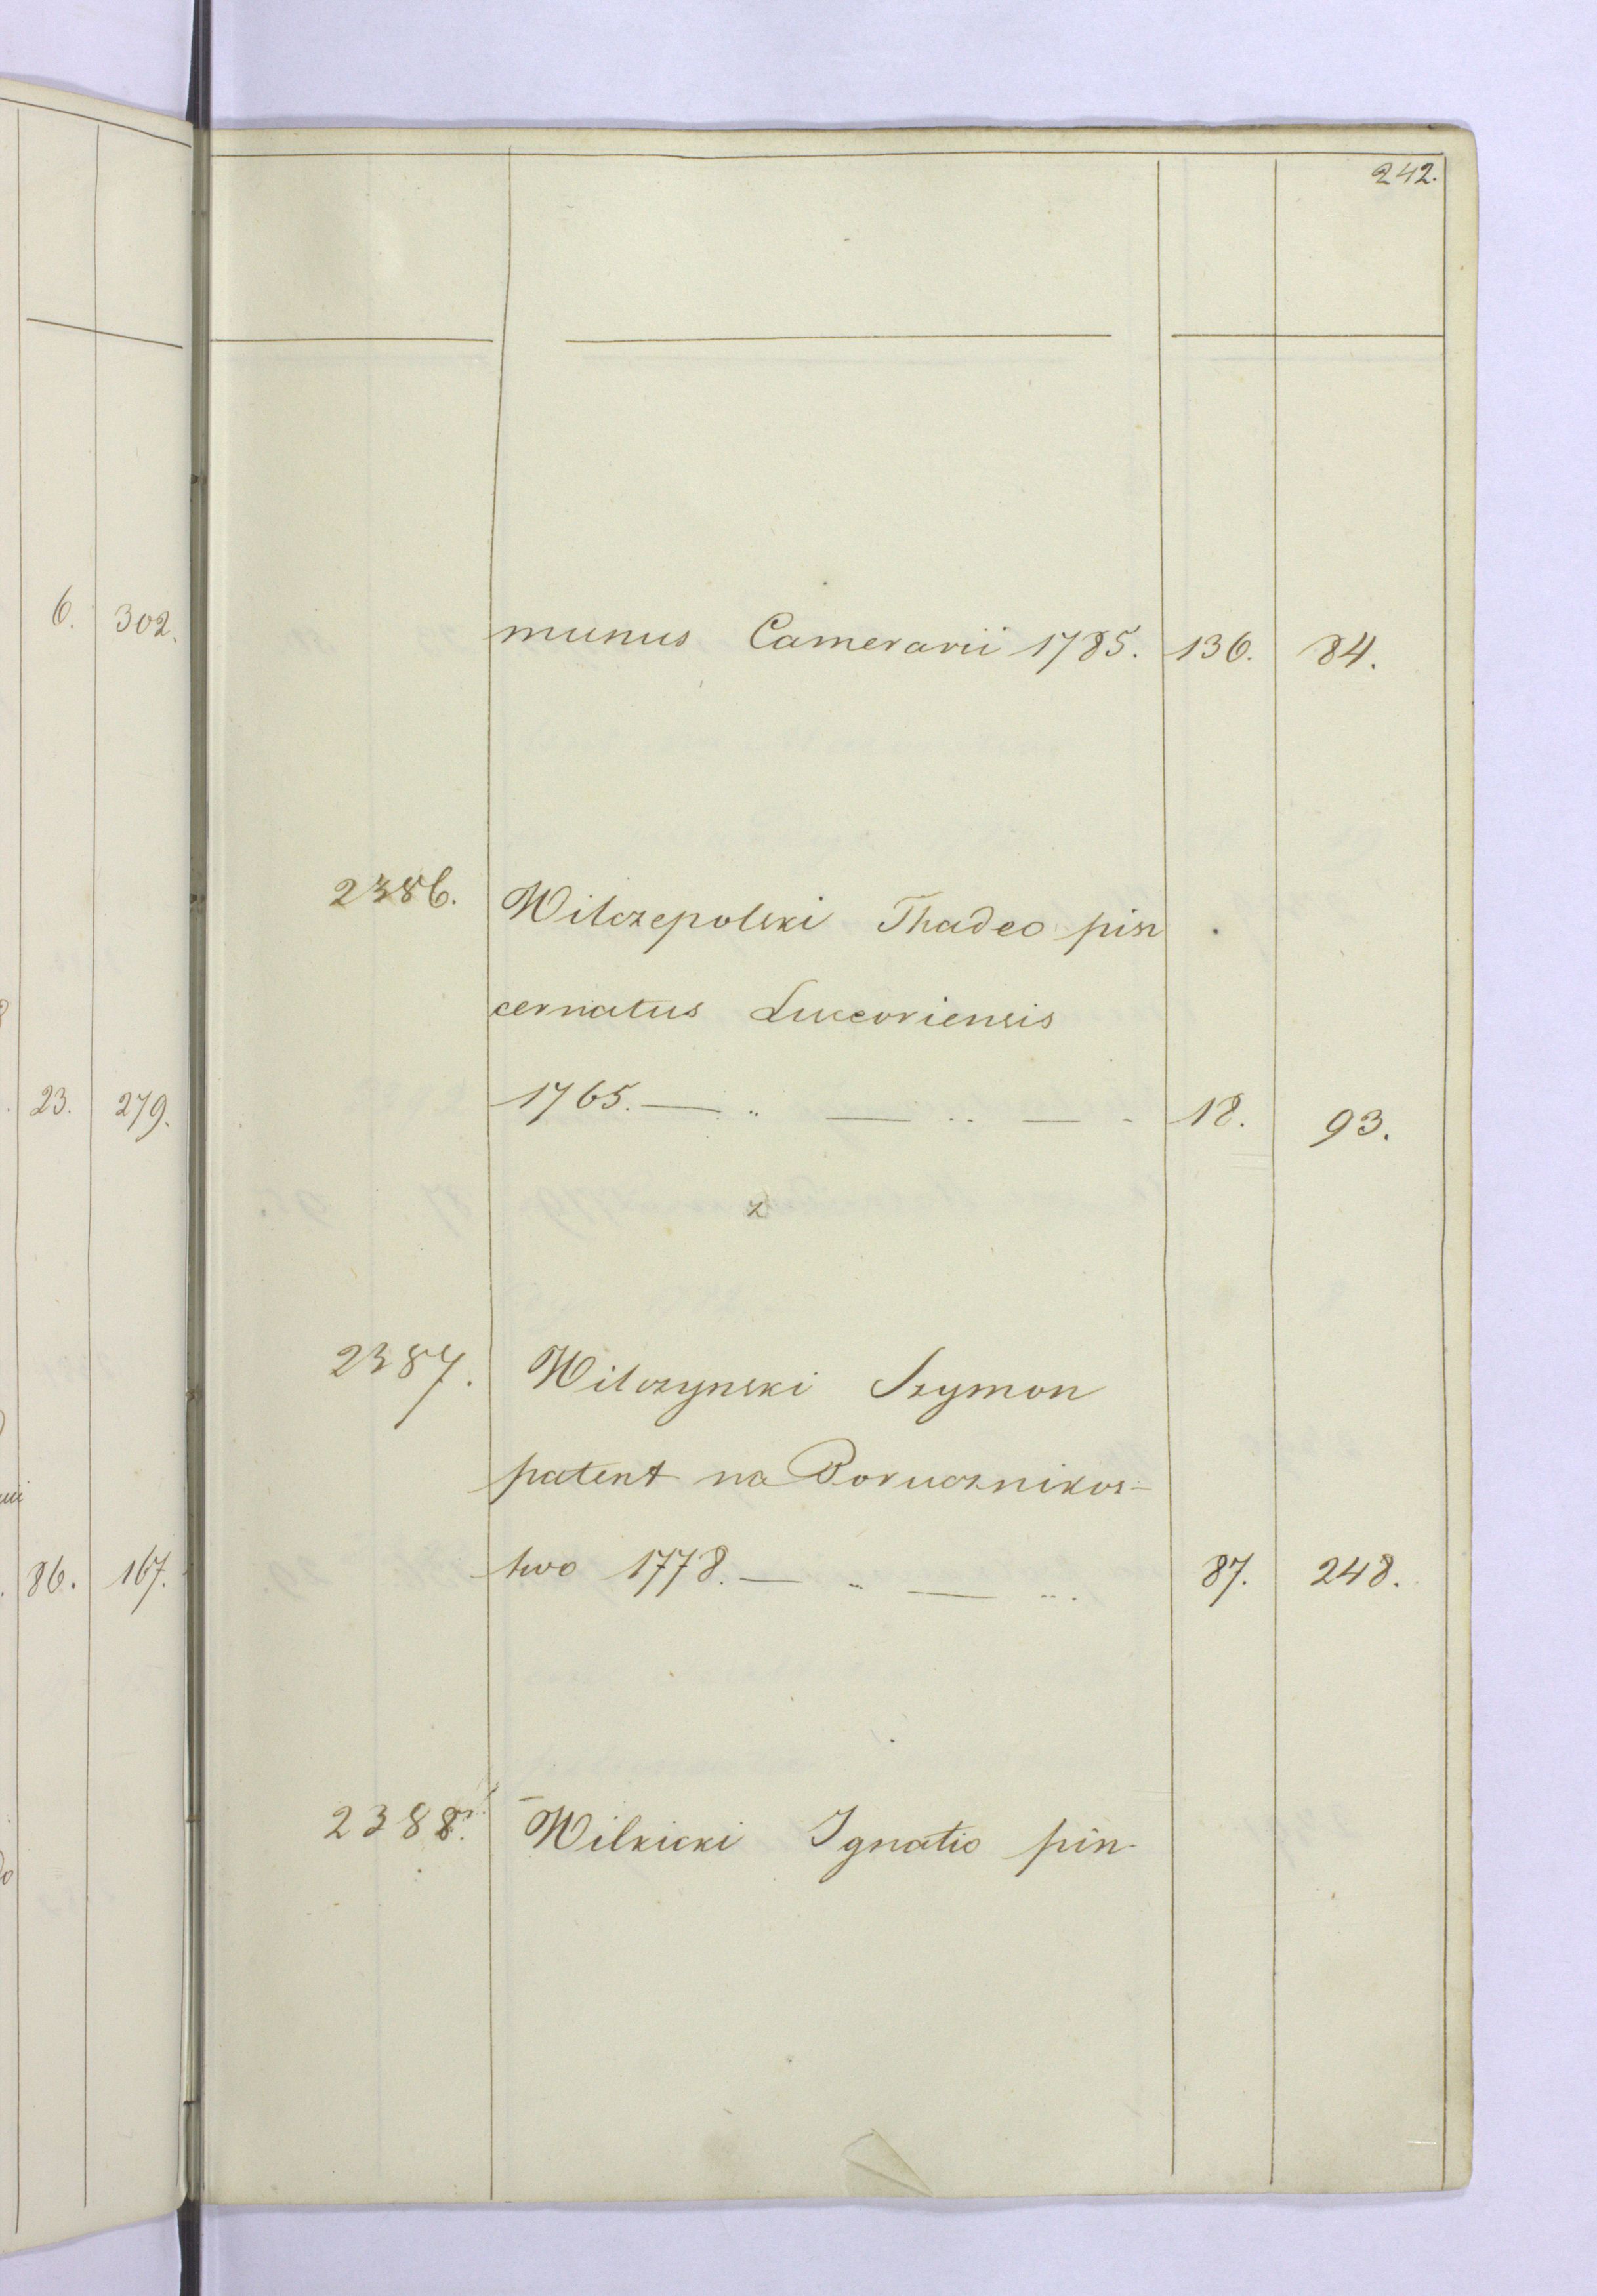 242.
6. 302.
munus Camerarii 1785. 136. 84.
2386. Wilczepolski Thadeo pin
cernatus Luceoriensis
23. 279.
1765. — „ — „ — - 18. 93.
2387. Wilczynski Szymon
patent na Porucznikos-
86. 167.
two 1778. — „ — „. 87. 248.
2388. Wilkicki Ignatio pin-